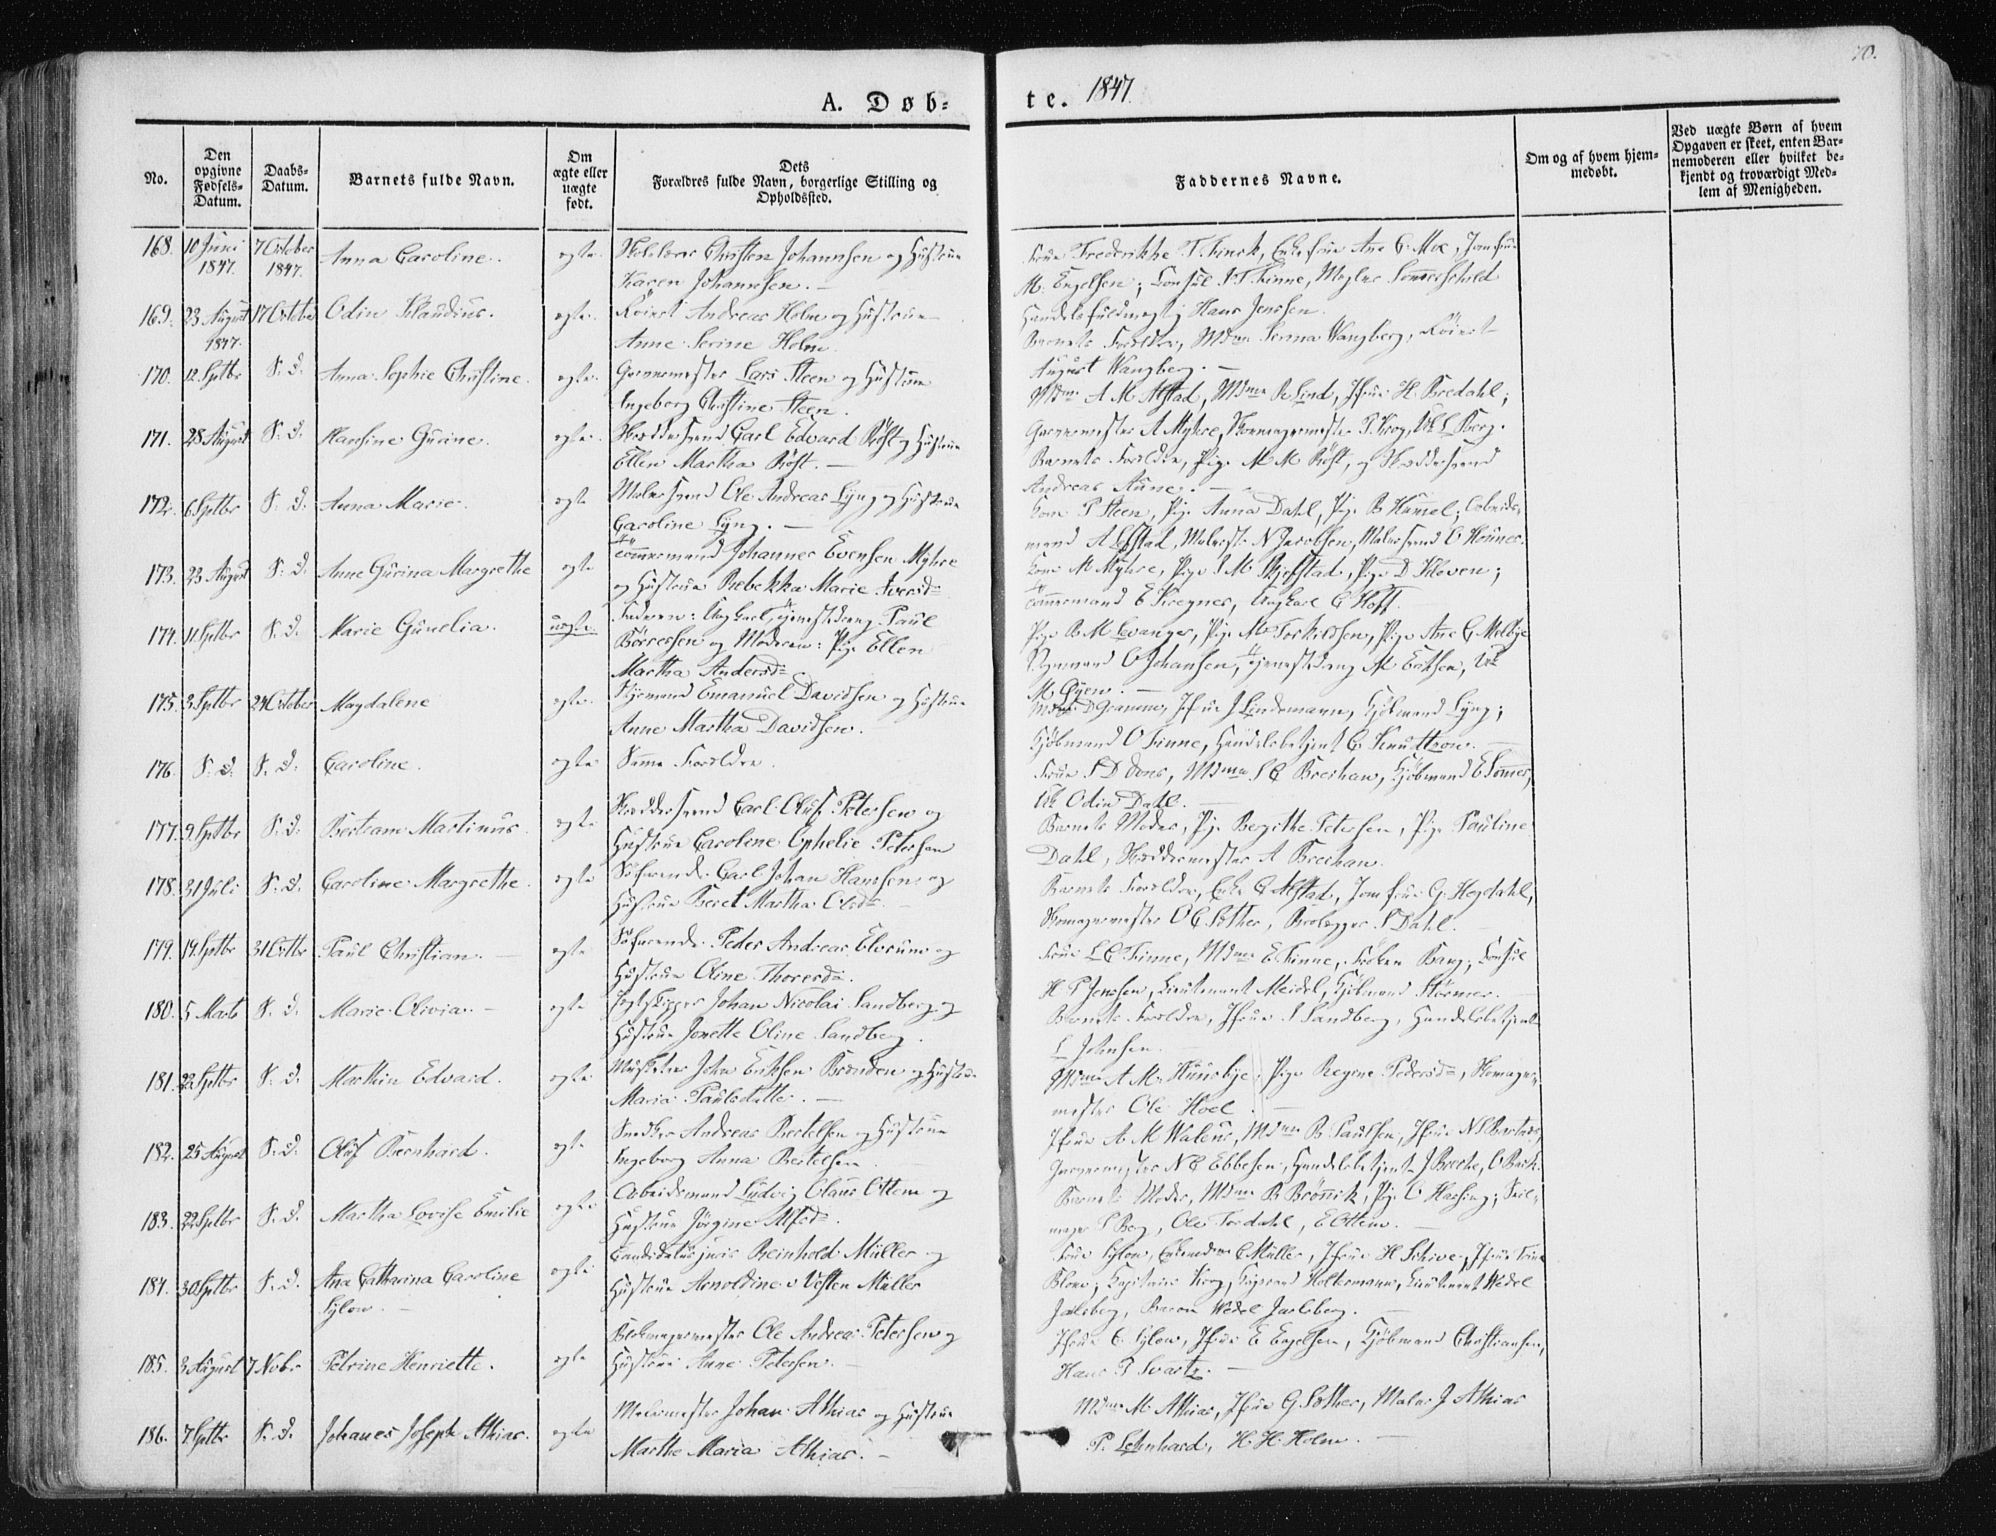 70.
A. Døb=
te. 1847.
No.
Den opgivne Fødsels-Datum.
Daabs-Datum.
Barnets fulde Navn.
Om ægte eller uægte født.
Dets Forældres fulde Navn, borgerlige Stilling og Opholdssted.
Faddernes Navne.
Om og af hvem hjemmedøbt.
Ved uægte Børn af hvem Opgaven er skeet, enten Barnemoderen eller hvilket bekjendt og troværdigt Medlem af Menigheden.
168. 10 Juni 1847. 7 October 1847. Anna Caroline. ægte. Christen Johannsen og Hustrue
Karen Johannsen.
Frue Frederikke T. Finck, Enkefrue Ane C. Moe, Jomfrue
M. Engelsen; Consul P. T. Finne, Mægler Sommerschild
Handelsfuldmægtig Hans Jenssen.
169. 23 August 1847. 17 October Odin Klaudius. ægte. Andreas Holm og Hustrue
Anne Serine Holm.
Barnets Forældre, Mdme Serina Wangberg,
August Wangberg.
170. 12 Sptbr S. D. Anna Sophie Christine. ægte. Garvermester Lars Steen og Hustrue
Ingeborg Christine Steen.
Mdme A M Alstad, Mdme R Lind, Jfrue H. Bredahl;
Garvermester A Myhre, Skomagermester P. Krog, L Berg.
171. 28 August S. D. Hansine Gurine. ægte. Skreddersvend Carl Edvard Röst og Hustrue
Ellen Martha Röst.
Barnets Forældre, Pige M M Röst, og Skreddersvend
Andreas Aune.
172. 6 Sptbr S. D. Anna Marie. ægte Malersvend Ole Andreas Lyng og Hustrue
Caroline Lyng.
Kone P Steen, Pige Anna Dahl, Pige B Hummel; Arbeids-
mand A Alstad, N Jacobsen, Malersvend C Hounes.
173. 23 August S. D. Anne Gurina Margrethe ægte Tømmermand Johannes Evensen Myhre
og Hustrue Rebekka Marie Iversd.
Kone M Myhre, Pige S M Skjefstad, Pige D Kloven;
Tømmermand E Kregnes, Ungkarl C Hoff.
174. 11 Sptbr S. D. Marie Gunelia. uægte. Faderen: Ungkarl, Tjenestedreng Paul
Börresen og Moderen: Pige Ellen
Martha Andersd.
Pige B M Levanger, Pige M Torkildsen, Pige Ane G Melbye
C Johansen, Tjenestedreng M Eriksen,
M Öyen.
175. 3 Sptbr 24 October Magdalene ægte. Emanuel Davidsen og Hustrue
Anne Martha Davidsen.
Mdme D Gramm, Jfrue J Lindemann, Kjöbmand Lyng;
Kjöbmand O Finne, Handelsbetjent C. Knudtzon.
176. S. D. S. D. Caroline. ægte Samme Forældre.
Frue S D Dons, Mdme S C Breihan, Kjöbmand E Sommer,
Odin Dahl.
177. 9 Sptbr S. D. Bertram Martinus. ægte Skreddersvend Carl Oluf Petersen og
Hustrue Caroline Ophelie Petersen
Barnets Moder, Pige Bergithe Petersen, Pige Pauline
Dahl, Skreddermester A Breihan.
178. 31 Juli S. D. Caroline Margrethe. ægte Söfarende Carl Johan Hanssen og
Hustrue Beret Martha Olsd.
Barnets Forældre, Enke G Alstad, Jomfrue G. Hegdahl,
Skomagermester O C Söther, P Dahl.
179. 14 Sptbr 31 Octbr Paul Christian. ægte Söfarende Peder Andreas Elvrum og
Hustrue Oline Thoresd.
Frue L C Finne, Mdme E Finne, Fröken Bang; Consul
H P Jenssen, Lieutenant Meidel, Kjöbmand Störmer.
180. 5 Marts S. D. Marie Olivia. ægte Jægtskipper Johan Nicolai Sandberg og
Hustrue Jonette Oline Sandberg.
Barnets Forældre, Jfrue S Sandberg, Handelsbetjent
L Johnsen.
181. 22 Sptbr S. D. Marthin Edvard. ægte Musketer John Eriksen Brænden og Hustrue
Maria Paulsdatter.
Mdme A M. Huusbye; Pige Regine Pedersd., Skomager-
mester Ole Hoel.
182. 25 August S. D. Oluf Bernhard. ægte Snedker Andreas Bertelsen og Hustrue
Ingeborg Anna Bertelsen
Jfrue A. M Walens, Mdme B. Paulsen, Jfrue
N C Ebbesen, Handelsbetjent J Breche, C Bach.
183. 22 Sptbr S. D. Martha Lovise Emilie ægte Arbeidsmand Ludvig Olaus Ottem og
Hustrue Jörgine Alfsd.
Barnets Moder, Mdme B Brönnik, Pige C Hassing; Seil-
mager P Berg, Ole Fordahl, E Ottem.
184. 30 Sptbr S. D. Ana Catharina Caroline
Sylow. ægte Candidatus juris Reinhold Müller og
Hustrue Arnoldine v Westen Müller
Frue Sylow, E Müller, Jfrue H Schive, Jfrue Trine
Blom; Kapitain Krog, Holtermann, Lieutenant Wedel
Jarlsberg, Baron Wedel Jarlsberg.
185. 3 August 7 Novbr Petrine Henriette. ægte Blikmagermester Ole Andreas Petersen og
Hustrue Anne Petersen.
Jfrue C. Sylow, Jfrue E Engelsen, Kjöbmand Christiansen,
Hans P Svartz.
186. 7 Sptbr S. D. Johanes Joseph Athias. ægte Malermester Johan Athias og Hustrue
Marthe Maria Athias.
Mdme M. Athias, Jfrue G. Söther, Maler J Athias
P. Lehnhard, H. H. Holm.